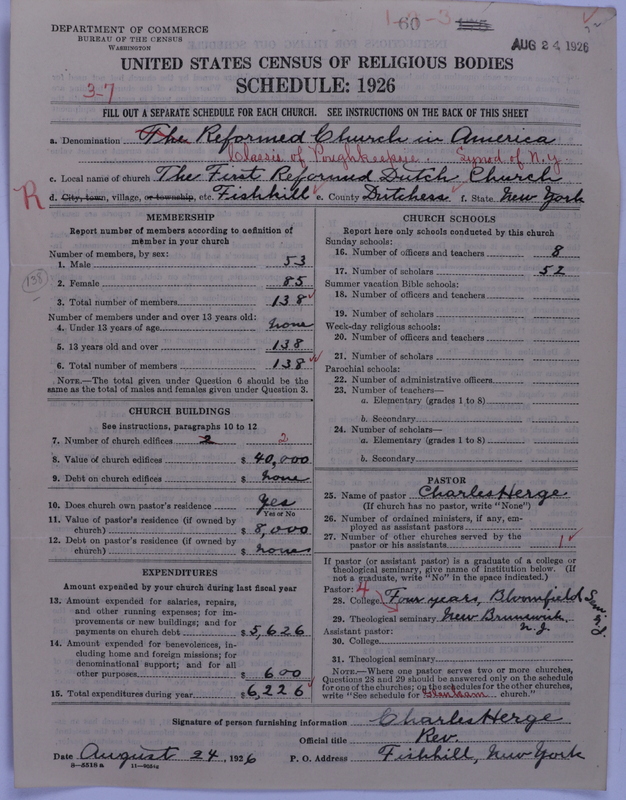 1-2-3
60
DEPARTMENT OF COMMERCE
BUREAU OF THE CENSUS
WASHINGTON
AUG 24 1926
UNITED STATES CENSUS OF RELIGIOUS BODIES
SCHEDULE: 1926
3-7
FILL OUT A SEPARATE SCHEDULE FOR EACH CHURCH. SEE INSTRUCTIONS ON THE BACK OF THIS SHEET
a. Denomination The Reformed Church in America
Classis of Poughkeepsie. Synod of N.Y.
c. Local name of church The First Reformed Dutch Church
R
d. City, town, village, or township, etc. Fishkill e. County Dutchess f. State New York
MEMBERSHIP
Report number of members according to definition of
member in your church
Number of members, by sex:
1. Male 53
2. Female 85
138
3. Total number of members 138
Number of members under and over 13 years old:
4. Under 13 years of age none
5. 13 years old and over 138
6. Total number of members 138
NOTE.—The total given under Question 6 should be
same as the total of males and females given under Question 3.
CHURCH BUILDINGS
See instructions, paragraphs 10 to 12
7. Number of church edifices 2 2
8. Value of church edifices $ 40,000
9. Debt on church edifices $ none
10. Does church own pastor's residence Yes
Yes or No
11. Value of pastor's residence (if owned by
church) $ 8,000
12. Debt on pastor's residence (if owned by
church) $ none
EXPENDITURES
Amount expended by your church during last fiscal year
13. Amount expended for salaries, repairs,
and other running expenses; for im-
provements or new buildings; and for
payments on church debt $ 5,626
14. Amount expended for benevolences, in-
cluding home and foreign missions; for
denominational support; and for all
other purposes $ 600
15. Total expenditures during year $ 6,226
CHURCH SCHOOLS
Report here only schools conducted by this church
Sunday schools:
16. Number of officers and teachers 8
17. Number of scholars 52
Summer vacation Bible schools:
18. Number of officers and teachers
19. Number of scholars
Week-day religious schools:
20. Number of officers and teachers
21. Number of scholars
Parochial schools:
22. Number of administrative officers
23. Number of teachers—
a. Elementary (grades 1 to 8)
b. Secondary
24. Number of scholars—
a. Elementary (grades 1 to 8)
b. Secondary
PASTOR
25. Name of pastor Charles Herge
(If church has no pastor, write "None")
26. Number of ordained ministers, if any, em-
ployed as assistant pastors
27. Number of other churches served by the
pastor or his assistants 1
If pastor (or assistant pastor) is a graduate of a college or
theological seminary, give name of institution below. (If
not a graduate, write "No" in the space indicated.)
Pastor: 4
28. College Four years, Bloomfield Sem. N.J.
29. Theological seminary New Brunswick,
Assistant pastor: N.J.
30. College
31. Theological seminary
NOTE.—Where one pastor serves two or more churches,
Questions 28 and 29 should be answered only on the schedule
for one of the churches; on the schedules for the other churches,
write "See schedule for Glenham church."
Signature of person furnishing information Charles Herge
Official title Rev.
Date August 24, 1926 P. O. Address Fishkill, New York
8—5518 a